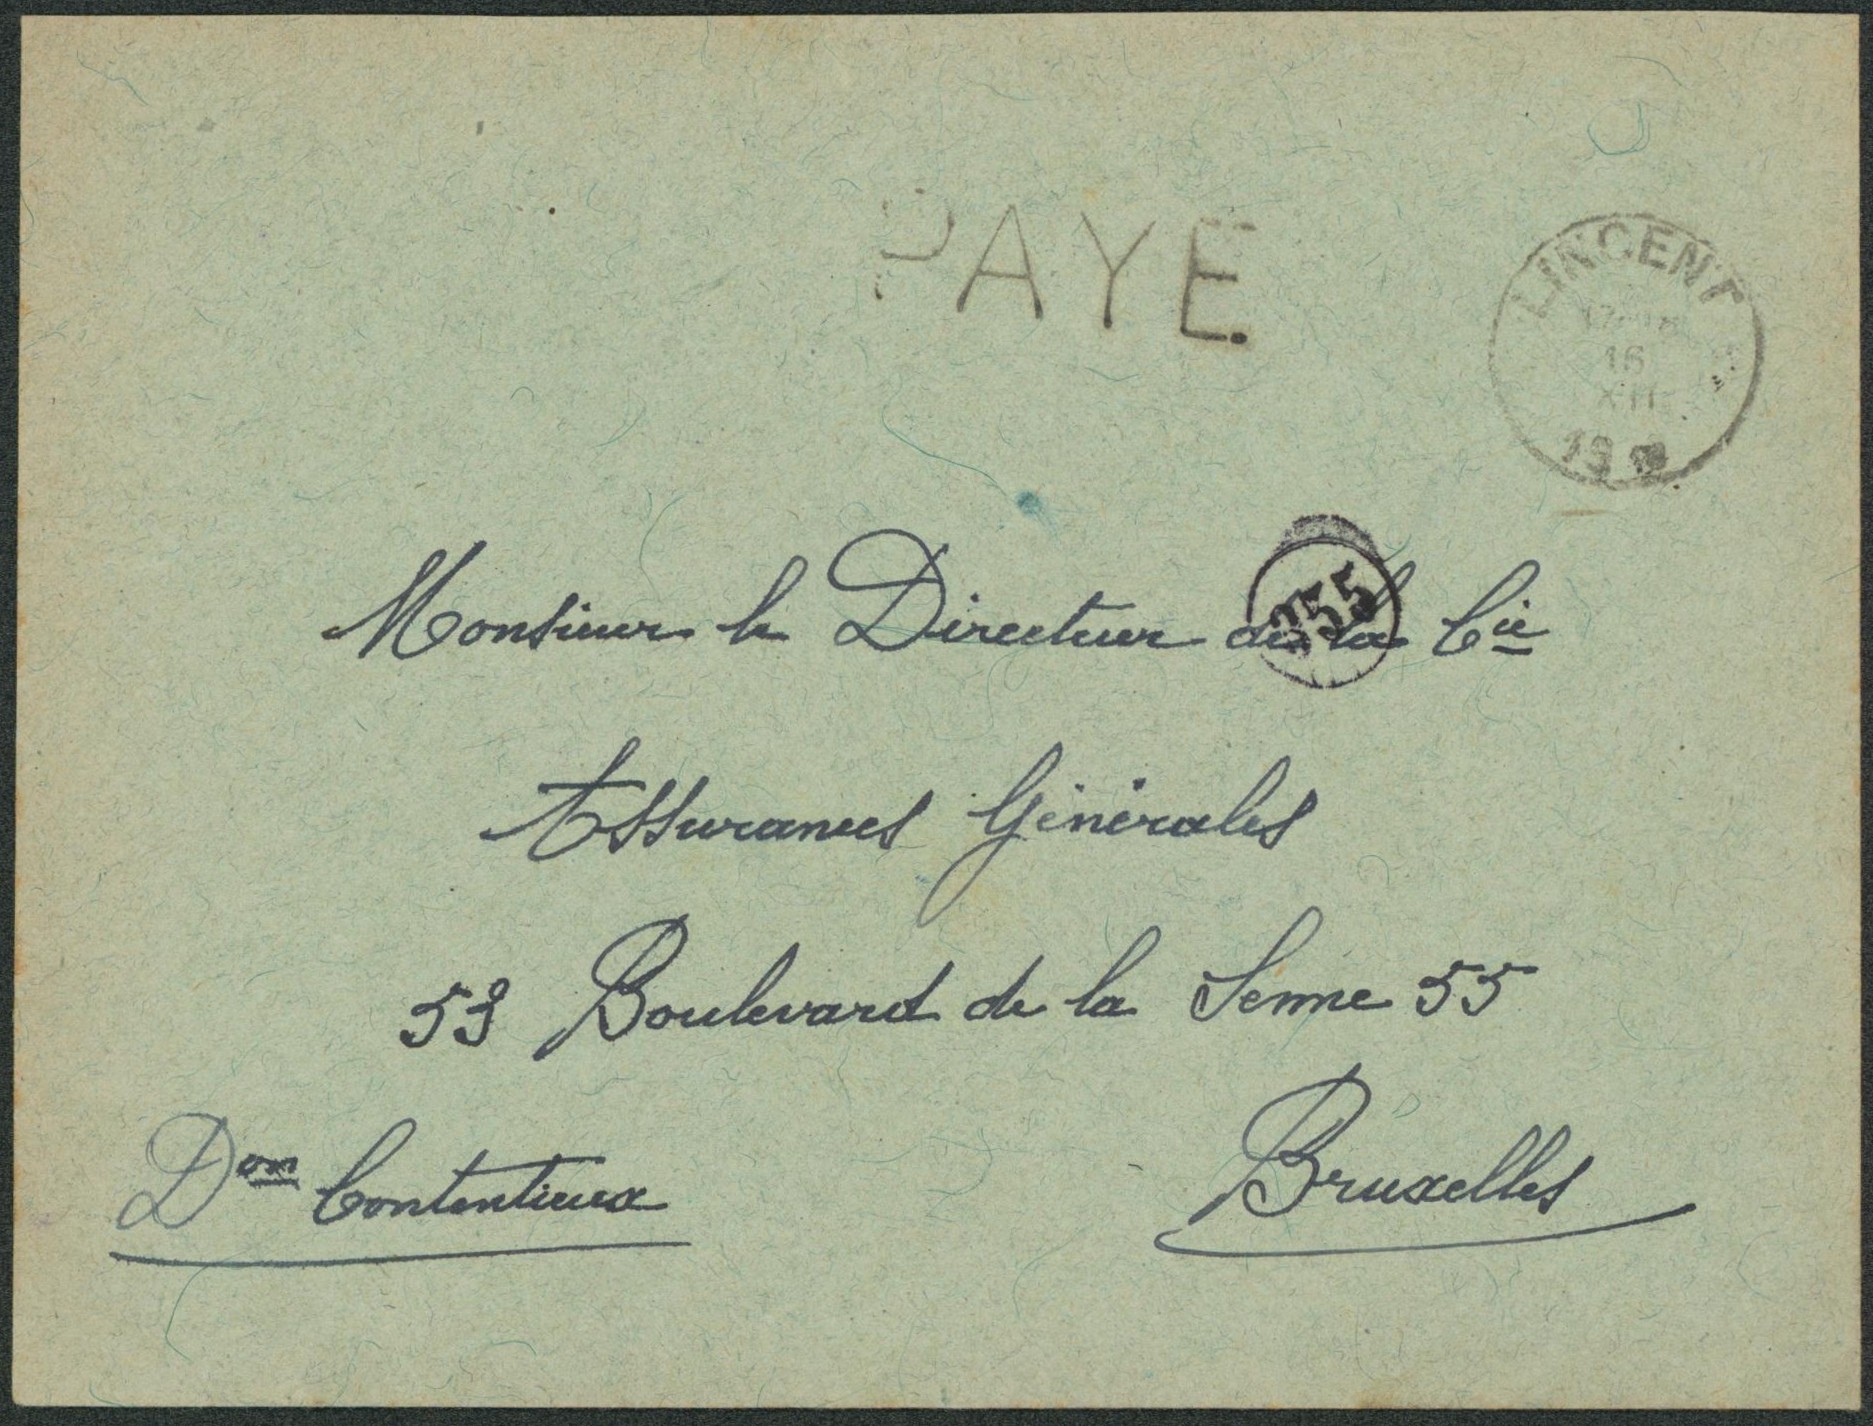 PAYE.
LINCENT
17-18
16
XII
19
355
Monsieur le Directeur de la Cie
Assurances Générales
53 Boulevard de la Senne 55
Bruxelles
Don Contentieux